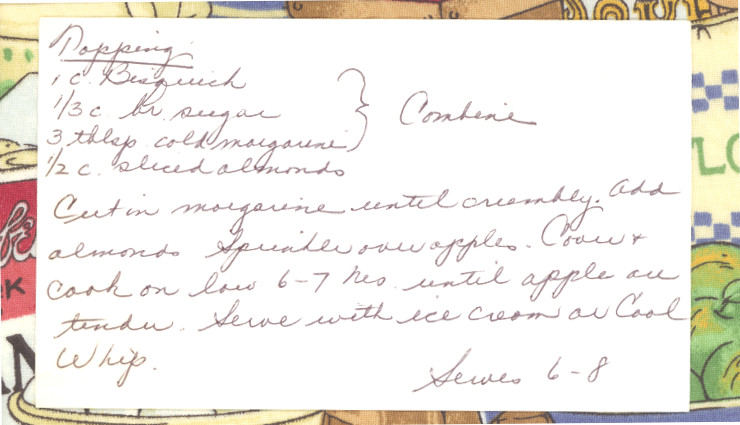 Topping
1 c. Bisquick
1/3 c. br. sugar
3 tblsp cold margarine
Combine
1/2 c. sliced almonds
Cut in margarine until crumbly. Add
almonds Sprinkle over apples. Cover +
cook on low 6-7 hrs. until apple are
tender. Serve with ice cream or Cool
Whip.
Serves 6-8